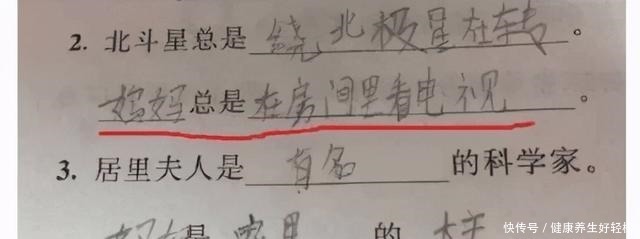 2. 北斗星总是绕北极星在转。
妈妈总是在房间里看电视。
3. 居里夫人是有名的科学家。
是 的
快传号/健康养生好轻松